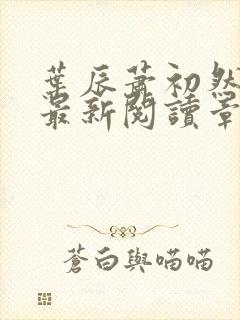 葉辰蕭初然
最新閱讀章
蒼白與喵喵